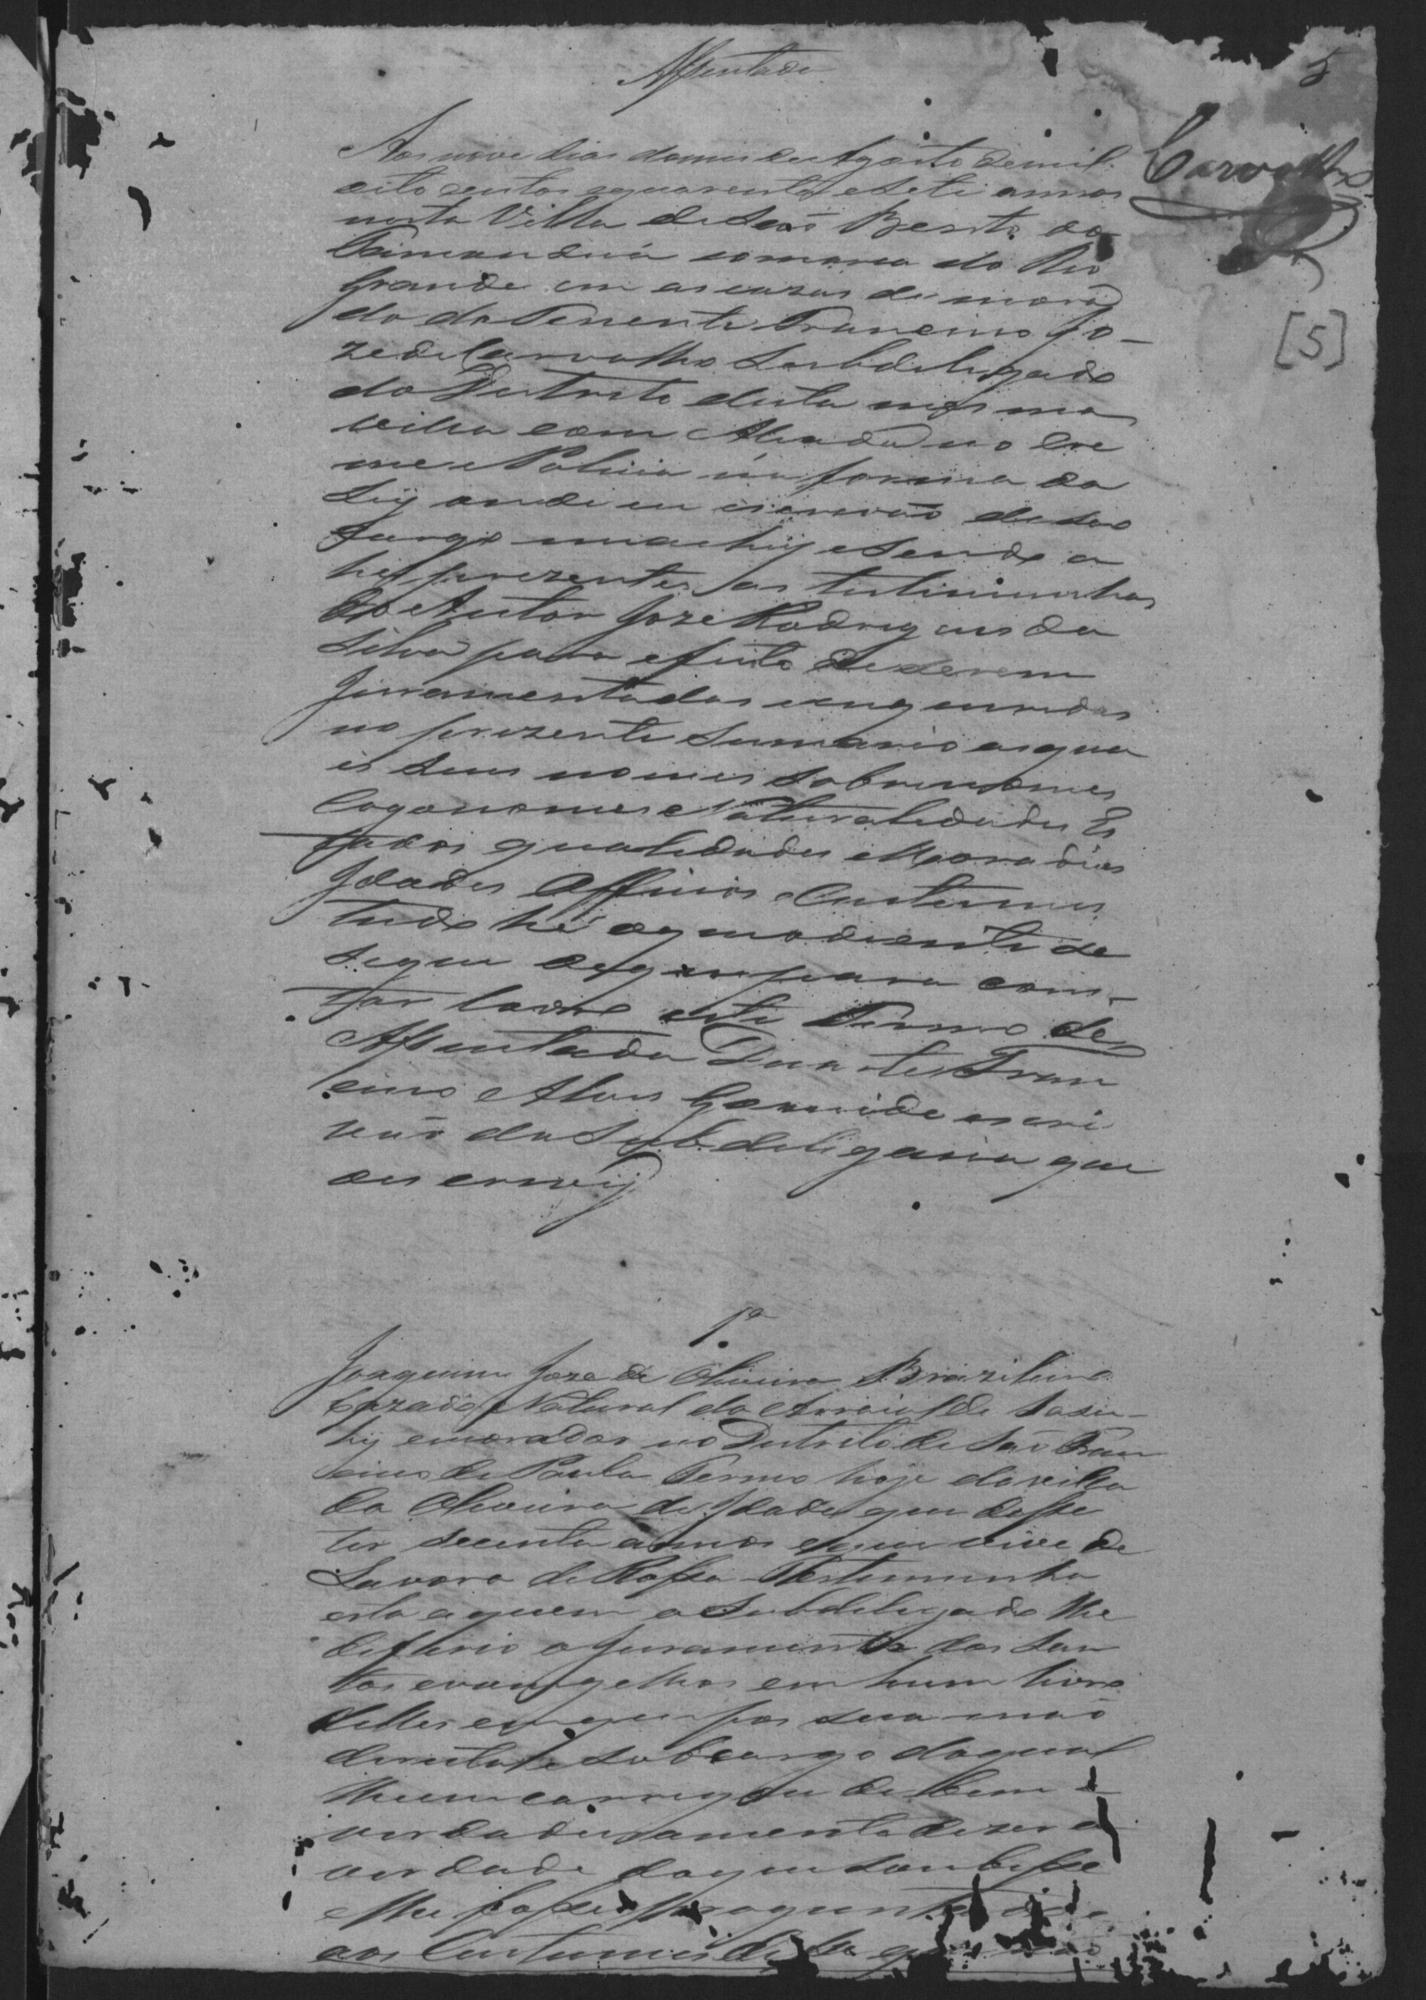 Assentada
5
Carvalho
[5]
Aos nove dias do mes de Agosto de mil
oito sentos equarenta esete annos
nesta Villa de São Bento do
Tamanduá comarca do Rio
grande em as cazas de mora
da do Tenente Francisco Jo-
ze de Carvalho Subdelegado
do Destrito desta mesma
villa com Alsada no Cri
me e Policia na forma da
Ley onde eu escrivão de seo
Cargo me achey e sendo a
hi prezentes as testimunhas
do Autor Joze Rodrigues da
Silva para efeito de serem
juramentadas einqueridas
no prezente Sumario asqua
is seus nomes sobrenomes
Cognomes Naturalidades Es
tados qualidades eMoradias
Idades Officios eCustumes
tudo hé oque adiante se
segue deque para cons-
tar lavro este Termo de
Assentada Duarte Fran
cisco Alves Garcide escri
vão da Subdelegacia que
oescrevy
1ª
Joaquim Joze de Oliveira Brazileiro
Cazado Natural do Arraial de
emorador no Destrito de São Fran
cisco de Paula Termo hoje da villa
da Oliveira de Idade que disse
ter secenta annos eque vive de
Lavora de Rossa Testemunha
esta aquem o Subdelegado lhe
deferio o juramento dos San
tos evangelhos em hum livro
delles em que pos sua mão
direita e sob cargo do qual
lhe emcarregou de bem e
verdadeiramente dizer a
verdade do que soubesse
e lhe fosse preguntado
aos Custumes disse